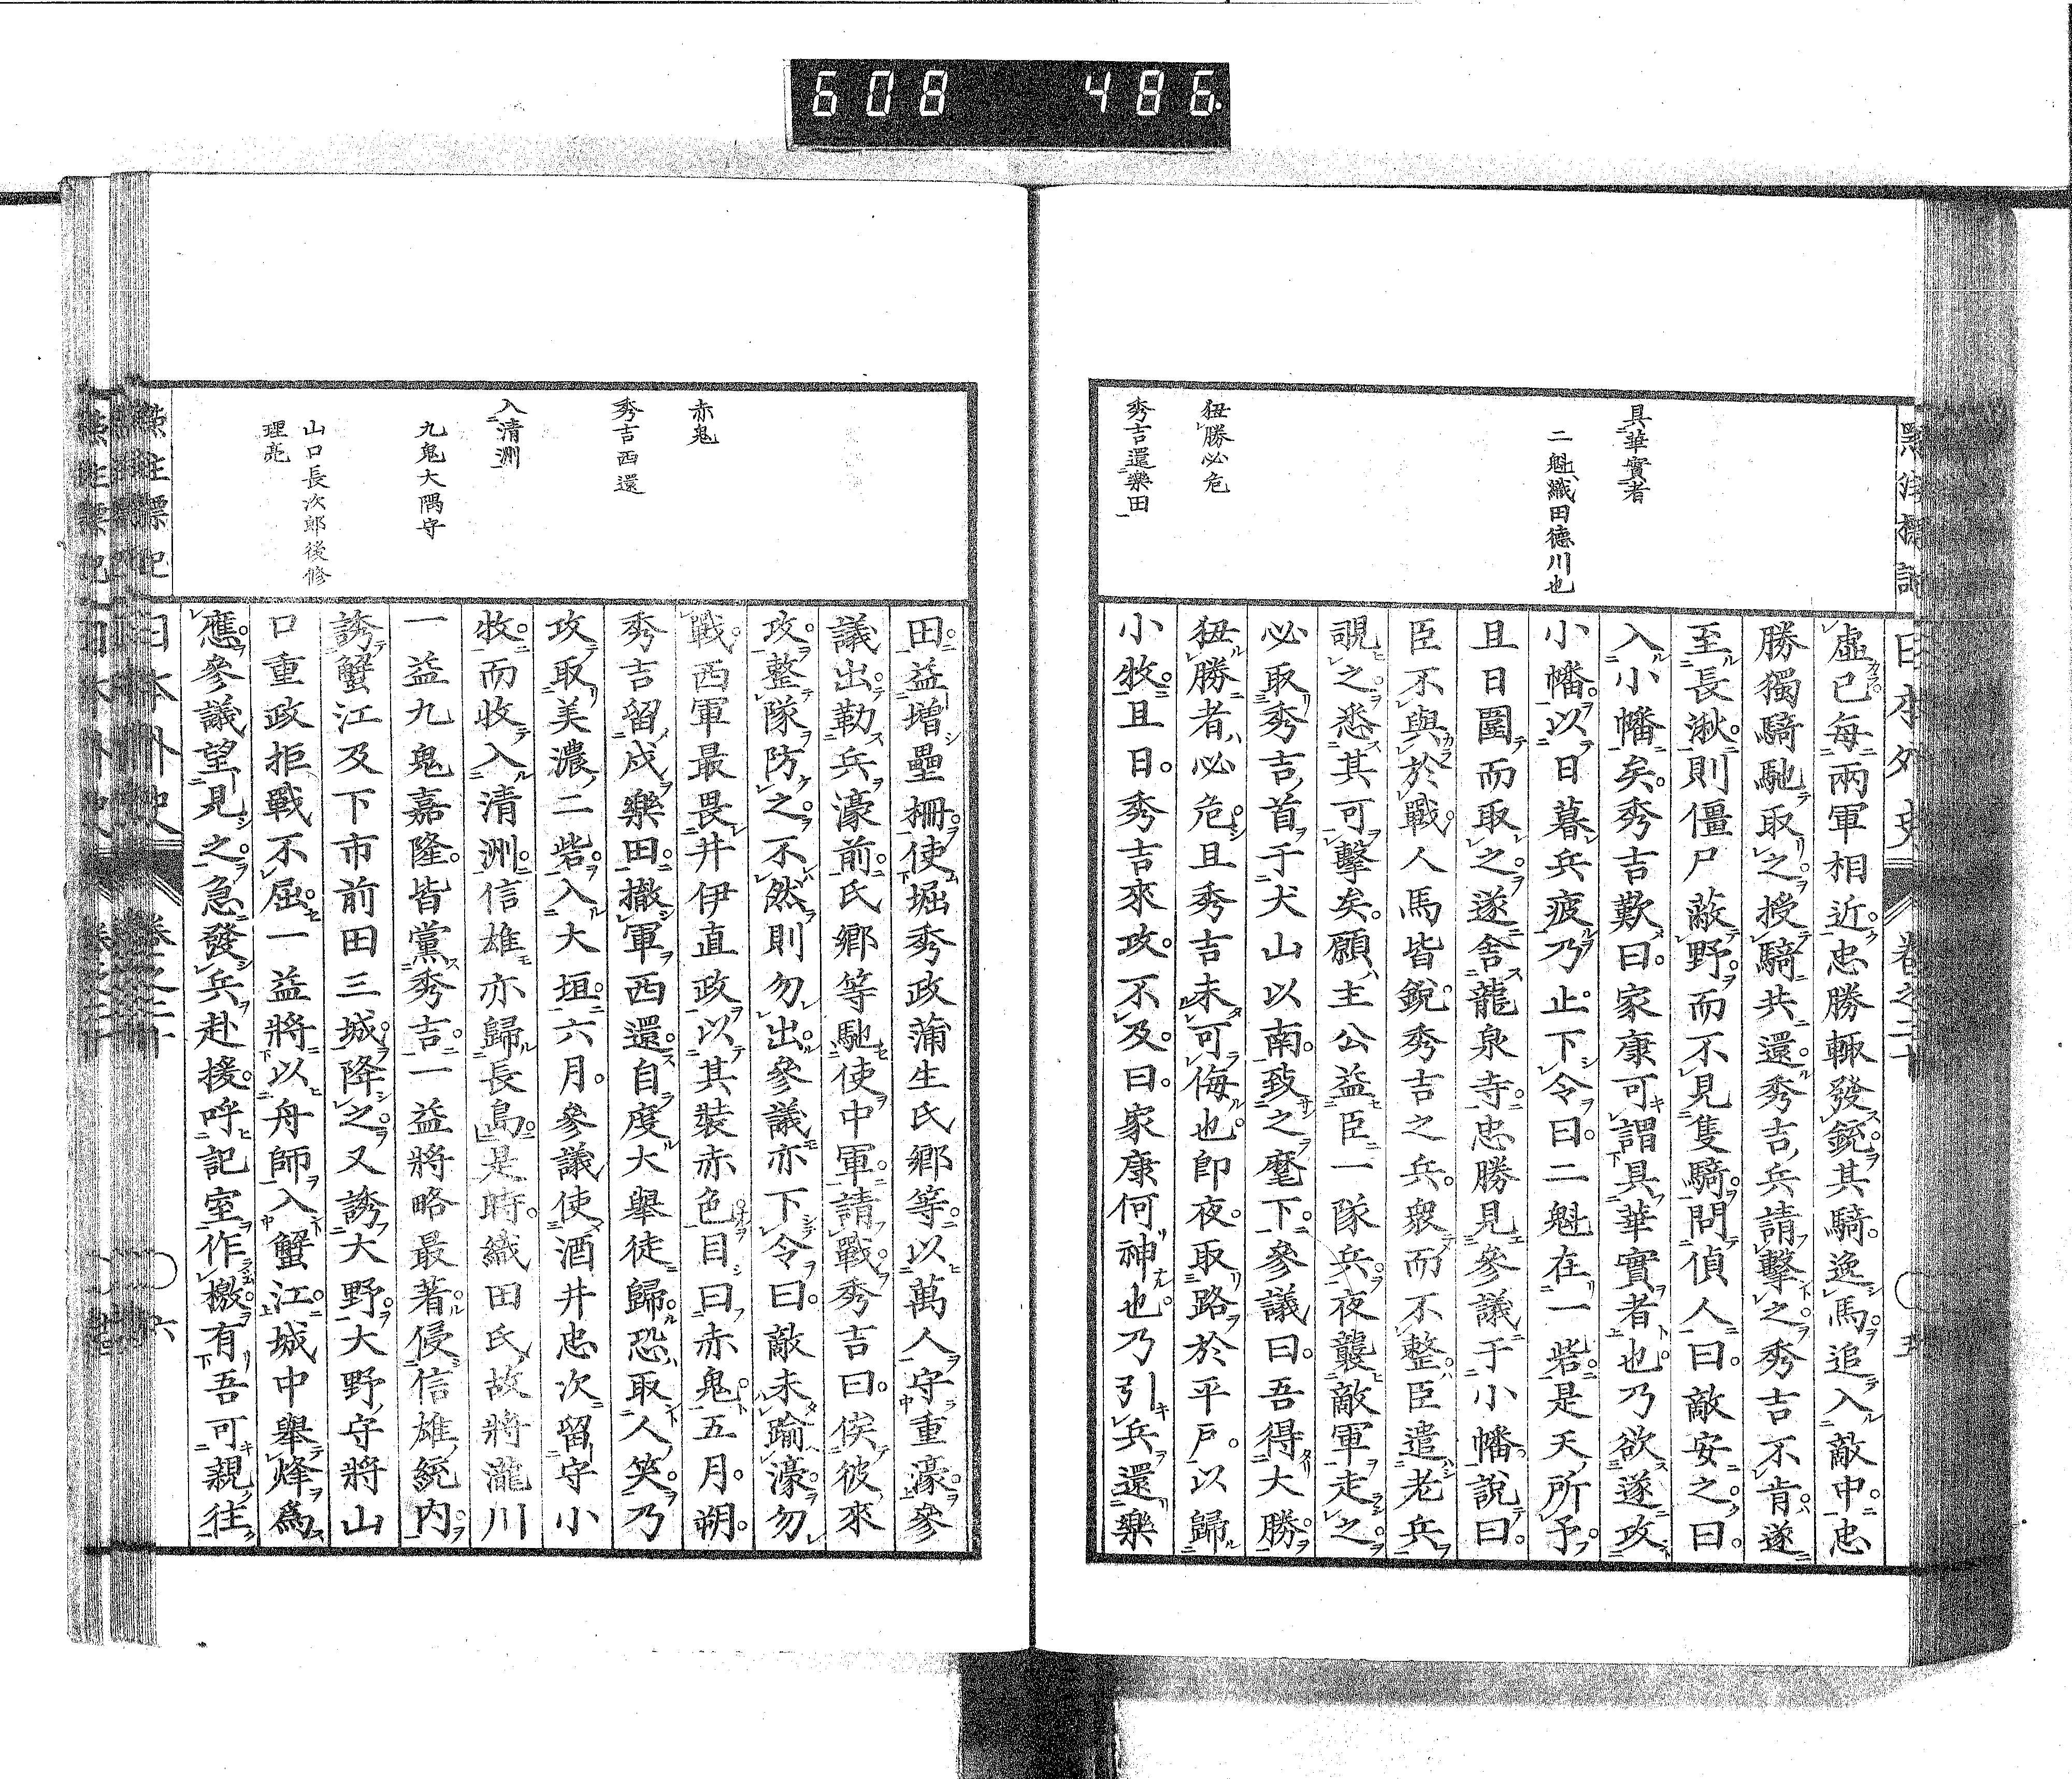 608 486
日本外史
卷之二十
具華實者
二魁織田德川也
狃勝必危
秀吉還樂田
虛已每兩軍相近忠勝輙發銃其騎逸馬追入敵中忠
勝獨騎馳取之授騎共還秀吉兵請擊之秀吉不肯遂
至長湫則僵尸蔽野而不見隻騎問偵人曰敵安之曰
入小幡矣秀吉歎曰家康可謂具華實者也乃欲遂攻
小幡以日暮兵疲乃止下令曰二魁在一砦是天所予
且日圍而取之遂舍龍泉寺忠勝見參議于小幡說曰
臣不與於戰人馬皆銳秀吉之兵衆而不整臣遣老兵
覘之悉其可擊矣願主公益臣一隊兵夜襲敵軍走之
必取秀吉首于犬山以南致之麾下參議曰吾得大勝
狃勝者必危且秀吉未可侮也卽夜取路於平戶以歸
小牧且日秀吉來攻不及曰家康何神也乃引兵還樂
赤鬼
秀吉西還
入清洲
九鬼大隅守
山口長次郎後修
理亮
田益増壘柵使堀秀政蒲生氏鄉等以萬人守重濠參
議出勒兵濠前氏鄉等馳使中軍請戰秀吉曰俟彼來
攻整隊防之不然則勿出參議亦下令曰敵未踰濠勿
戰西軍最畏井伊直政以其裝赤色目曰赤鬼五月朔
秀吉留戍樂田撤軍西還自度大舉徒歸恐取人笑乃
攻取美濃二砦入大垣六月參議使酒井忠次留守小
牧而收入清洲信雄亦歸長島是時織田氏故將瀧川
一益九鬼嘉隆皆黨秀吉一益將略最著侵信雄統內
誘蟹江及下市前田三城降之又誘大野大野守將山
口重政拒戰不屈一益將以舟師入蟹江城中舉烽爲
應參議望見之急發兵赴援呼記室作檄有吾可親往
日本外史
卷之二十
〇六